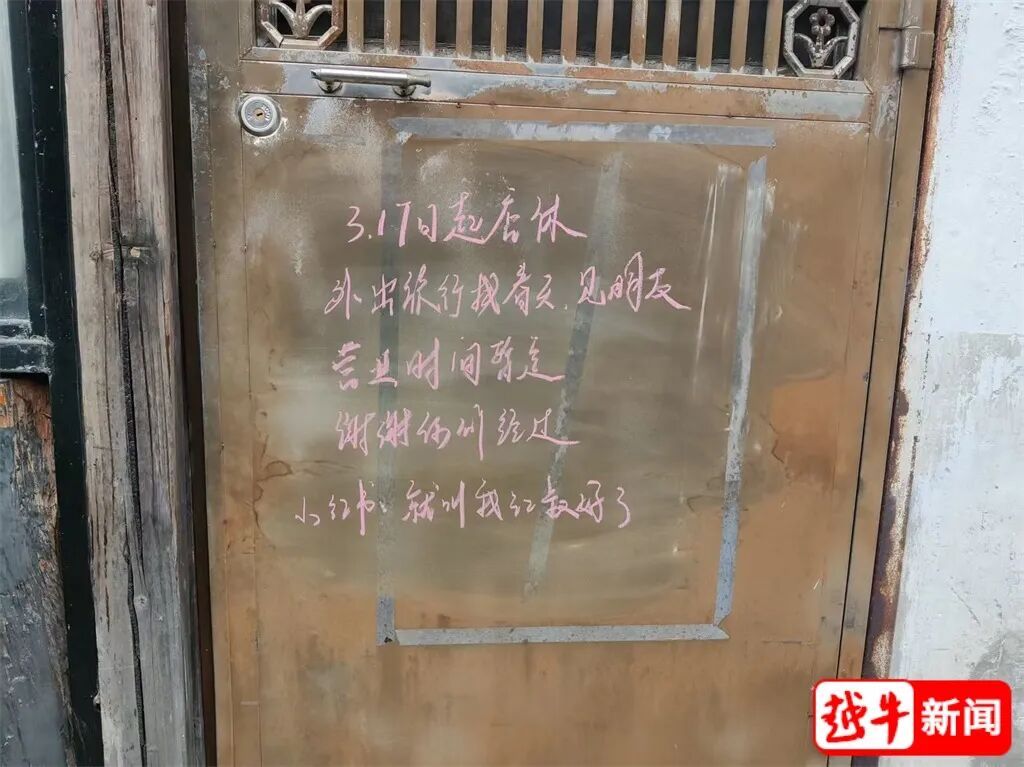 3.17日起店休
外出旅行找春天.见朋友
营业时间暂定
谢谢你们经过
小红书、就叫我红叔好了
越牛新闻